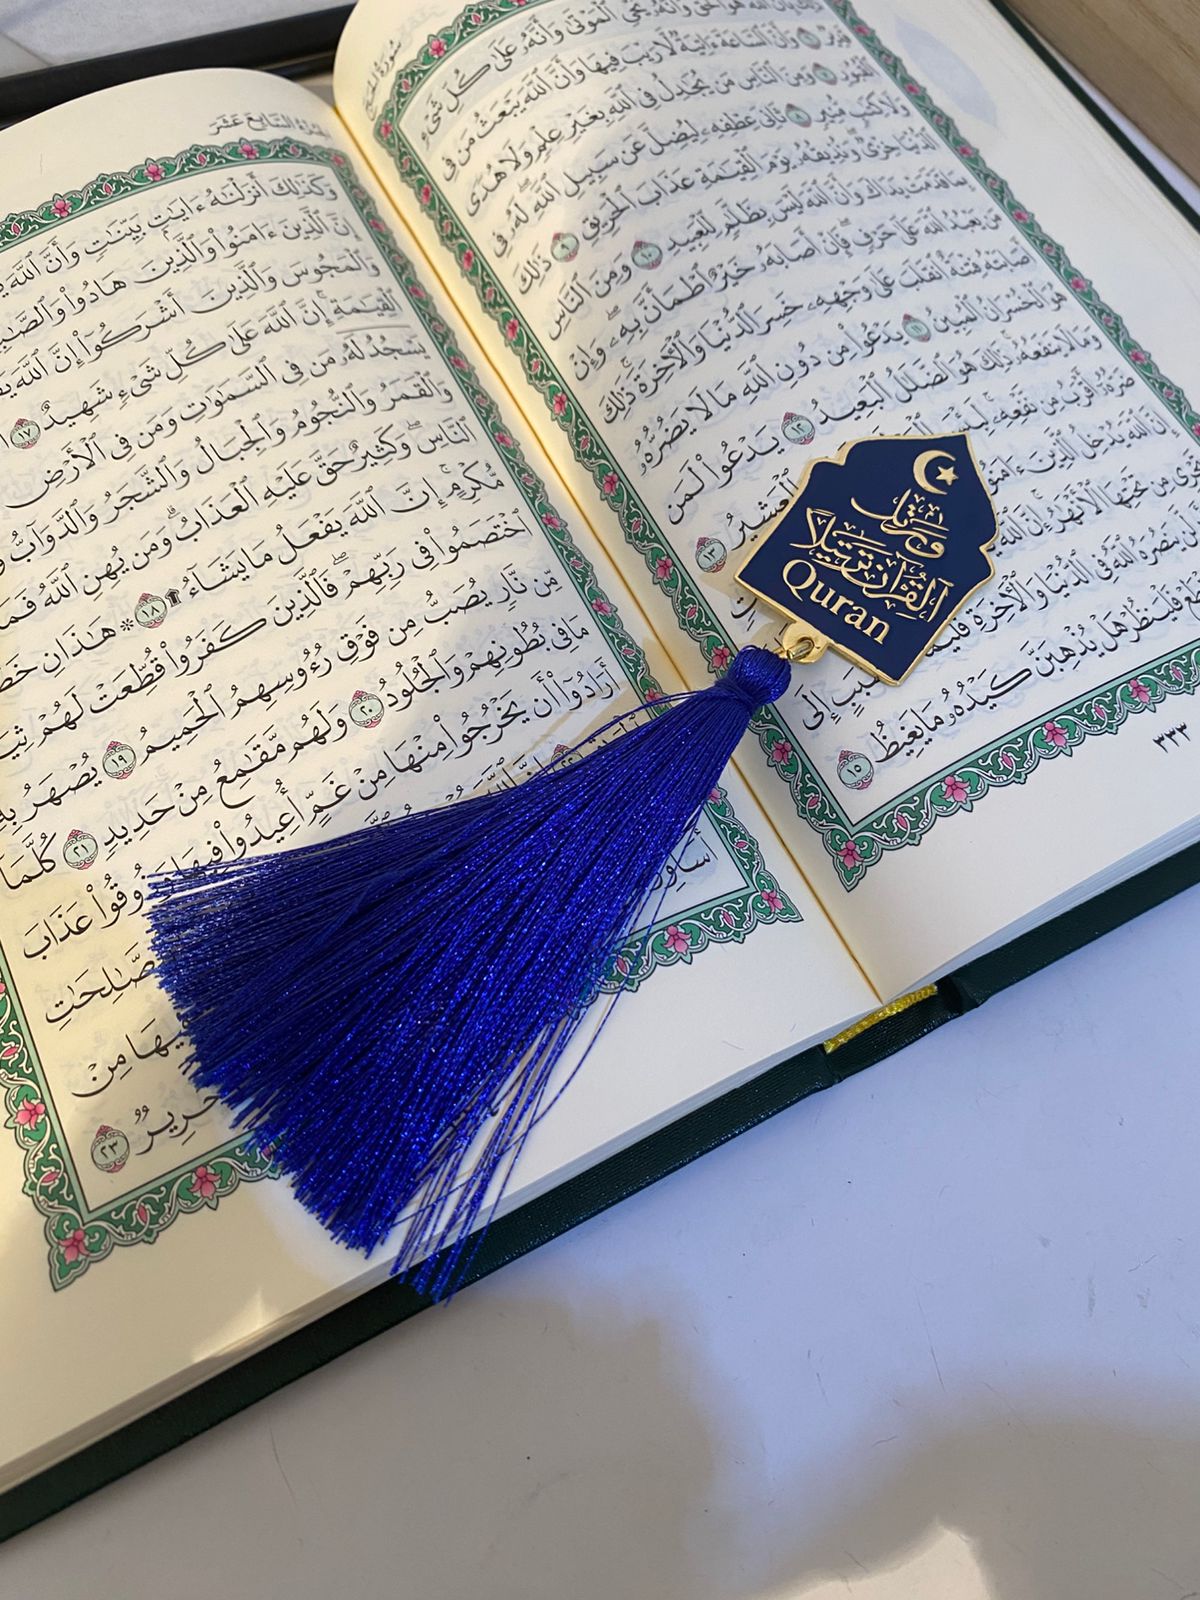 سُورَةُ الحَجِّ
ذَٰلِكَ بِأَنَّ ٱللَّهَ هُوَ ٱلْحَقُّ وَأَنَّهُۥ يُحْىِ ٱلْمَوْتَىٰ وَأَنَّهُۥ عَلَىٰ كُلِّ شَىْءٍ
قَدِيرٌ ٦ وَأَنَّ ٱلسَّاعَةَ ءَاتِيَةٌ لَّا رَيْبَ فِيهَا وَأَنَّ ٱللَّهَ يَبْعَثُ مَن فِى
ٱلْقُبُورِ ٧ وَمِنَ ٱلنَّاسِ مَن يُجَٰدِلُ فِى ٱللَّهِ بِغَيْرِ عِلْمٍ وَلَا هُدًى
وَلَا كِتَٰبٍ مُّنِيرٍ ٨ ثَانِىَ عِطْفِهِۦ لِيُضِلَّ عَن سَبِيلِ ٱللَّهِ ۖ لَهُۥ فِى
ٱلدُّنْيَا خِزْىٌ ۖ وَنُذِيقُهُۥ يَوْمَ ٱلْقِيَٰمَةِ عَذَابَ ٱلْحَرِيقِ ٩ ذَٰلِكَ
بِمَا قَدَّمَتْ يَدَاكَ وَأَنَّ ٱللَّهَ لَيْسَ بِظَلَّٰمٍ لِّلْعَبِيدِ ١٠ وَمِنَ ٱلنَّاسِ
مَن يَعْبُدُ ٱللَّهَ عَلَىٰ حَرْفٍ ۖ فَإِنْ أَصَابَهُۥ خَيْرٌ ٱطْمَأَنَّ بِهِۦ ۖ وَإِنْ
أَصَابَتْهُ فِتْنَةٌ ٱنقَلَبَ عَلَىٰ وَجْهِهِۦ خَسِرَ ٱلدُّنْيَا وَٱلْءَاخِرَةَ ۚ ذَٰلِكَ
هُوَ ٱلْخُسْرَانُ ٱلْمُبِينُ ١١ يَدْعُوا۟ مِن دُونِ ٱللَّهِ مَا لَا يَضُرُّهُۥ
وَمَا لَا يَنفَعُهُۥ ۚ ذَٰلِكَ هُوَ ٱلضَّلَٰلُ ٱلْبَعِيدُ ١٢ يَدْعُوا۟ لَمَن
ضَرُّهُۥٓ أَقْرَبُ مِن نَّفْعِهِۦ ۚ لَبِئْسَ ٱلْعَشِيرُ ١٣
إِنَّ ٱللَّهَ يُدْخِلُ ٱلَّذِينَ ءَامَنُوا۟
تَجْرِى مِن تَحْتِهَا ٱلْأَنْهَٰرُ ۚ إِنَّ ٱللَّهَ
لَّن يَنصُرَهُ ٱللَّهُ فِى ٱلدُّنْيَا وَٱلْءَاخِرَةِ بِسَبَبٍ إِلَى
فَلْيَنظُرْ هَلْ يُذْهِبَنَّ كَيْدُهُۥ مَا يَغِيظُ ١٥
٣٣٣
وَرَتِّلِ
الْقُرْآنَ تَرْتِيلًا
Quran
الجُزْءُ السَّابِعَ عَشَرَ
وَكَذَٰلِكَ أَنزَلْنَٰهُ ءَايَٰتٍۭ بَيِّنَٰتٍ وَأَنَّ ٱللَّهَ
إِنَّ ٱلَّذِينَ ءَامَنُوا۟ وَٱلَّذِينَ هَادُوا۟ وَٱلصَّٰبِ
وَٱلْمَجُوسَ وَٱلَّذِينَ أَشْرَكُوٓا۟ إِنَّ ٱللَّهَ
ٱلْقِيَٰمَةِ ۚ إِنَّ ٱللَّهَ عَلَىٰ كُلِّ شَىْءٍ شَهِيدٌ ١٧
يَسْجُدُ لَهُۥ مَن فِى ٱلسَّمَٰوَٰتِ وَمَن فِى ٱلْأَرْضِ
وَٱلْقَمَرُ وَٱلنُّجُومُ وَٱلْجِبَالُ وَٱلشَّجَرُ وَٱلدَّوَآبُّ
ٱلنَّاسِ ۖ وَكَثِيرٌ حَقَّ عَلَيْهِ ٱلْعَذَابُ ۗ وَمَن يُهِنِ ٱللَّهُ فَمَا
مُّكْرِمٍ ۚ إِنَّ ٱللَّهَ يَفْعَلُ مَا يَشَآءُ ۩ ١٨ * هَٰذَانِ خَصْ
ٱخْتَصَمُوا۟ فِى رَبِّهِمْ ۖ فَٱلَّذِينَ كَفَرُوا۟ قُطِّعَتْ لَهُمْ ثِيَ
مِّن نَّارٍ يُصَبُّ مِن فَوْقِ رُءُوسِهِمُ ٱلْحَمِيمُ ١٩ يُصْهَرُ بِهِ
مَا فِى بُطُونِهِمْ وَٱلْجُلُودُ ٢٠ وَلَهُم مَّقَٰمِعُ مِنْ حَدِيدٍ ٢١ كُلَّمَآ
أَرَادُوٓا۟ أَن يَخْرُجُوا۟ مِنْهَا مِنْ غَمٍّ أُعِيدُوا۟ فِيهَا وَذُوقُوا۟ عَذَابَ
٢٢ ٱلصَّٰلِحَٰتِ
فِيهَا مِنْ
أَسَاوِرَ حَرِيرٌ ٢٣